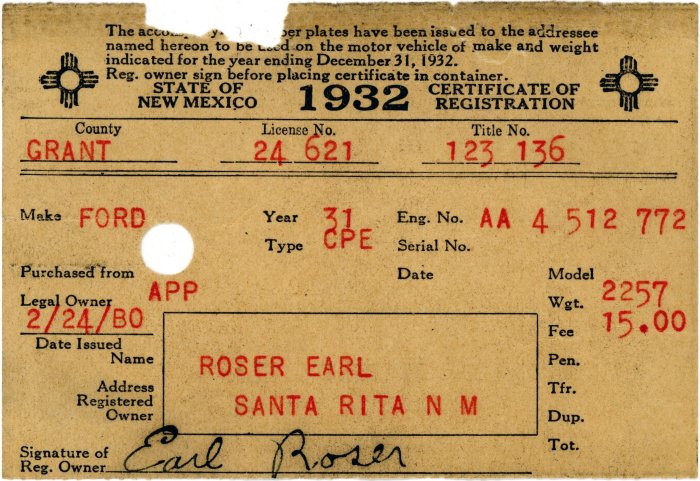 The ber plates have been issued to the addressee
named hereon to be used on the motor vehicle of make and weight
indicated for the year ending December 31, 1932.
Reg. owner sign before placing certificate in container.
STATE OF NEW MEXICO 1932 CERTIFICATE OF REGISTRATION
County License No. Title No.
GRANT 24 621 123 136
Make FORD Year 31 Eng. No. AA 4 512 772
Type CPE Serial No.
Purchased from Date Model
Legal Owner APP Wgt. 2257
2/24/BO Fee 15.00
Date Issued
Name ROSER EARL Pen.
Address SANTA RITA N M Tfr.
Registered Owner Dup.
Tot.
Signature of Reg. Owner Earl Roser